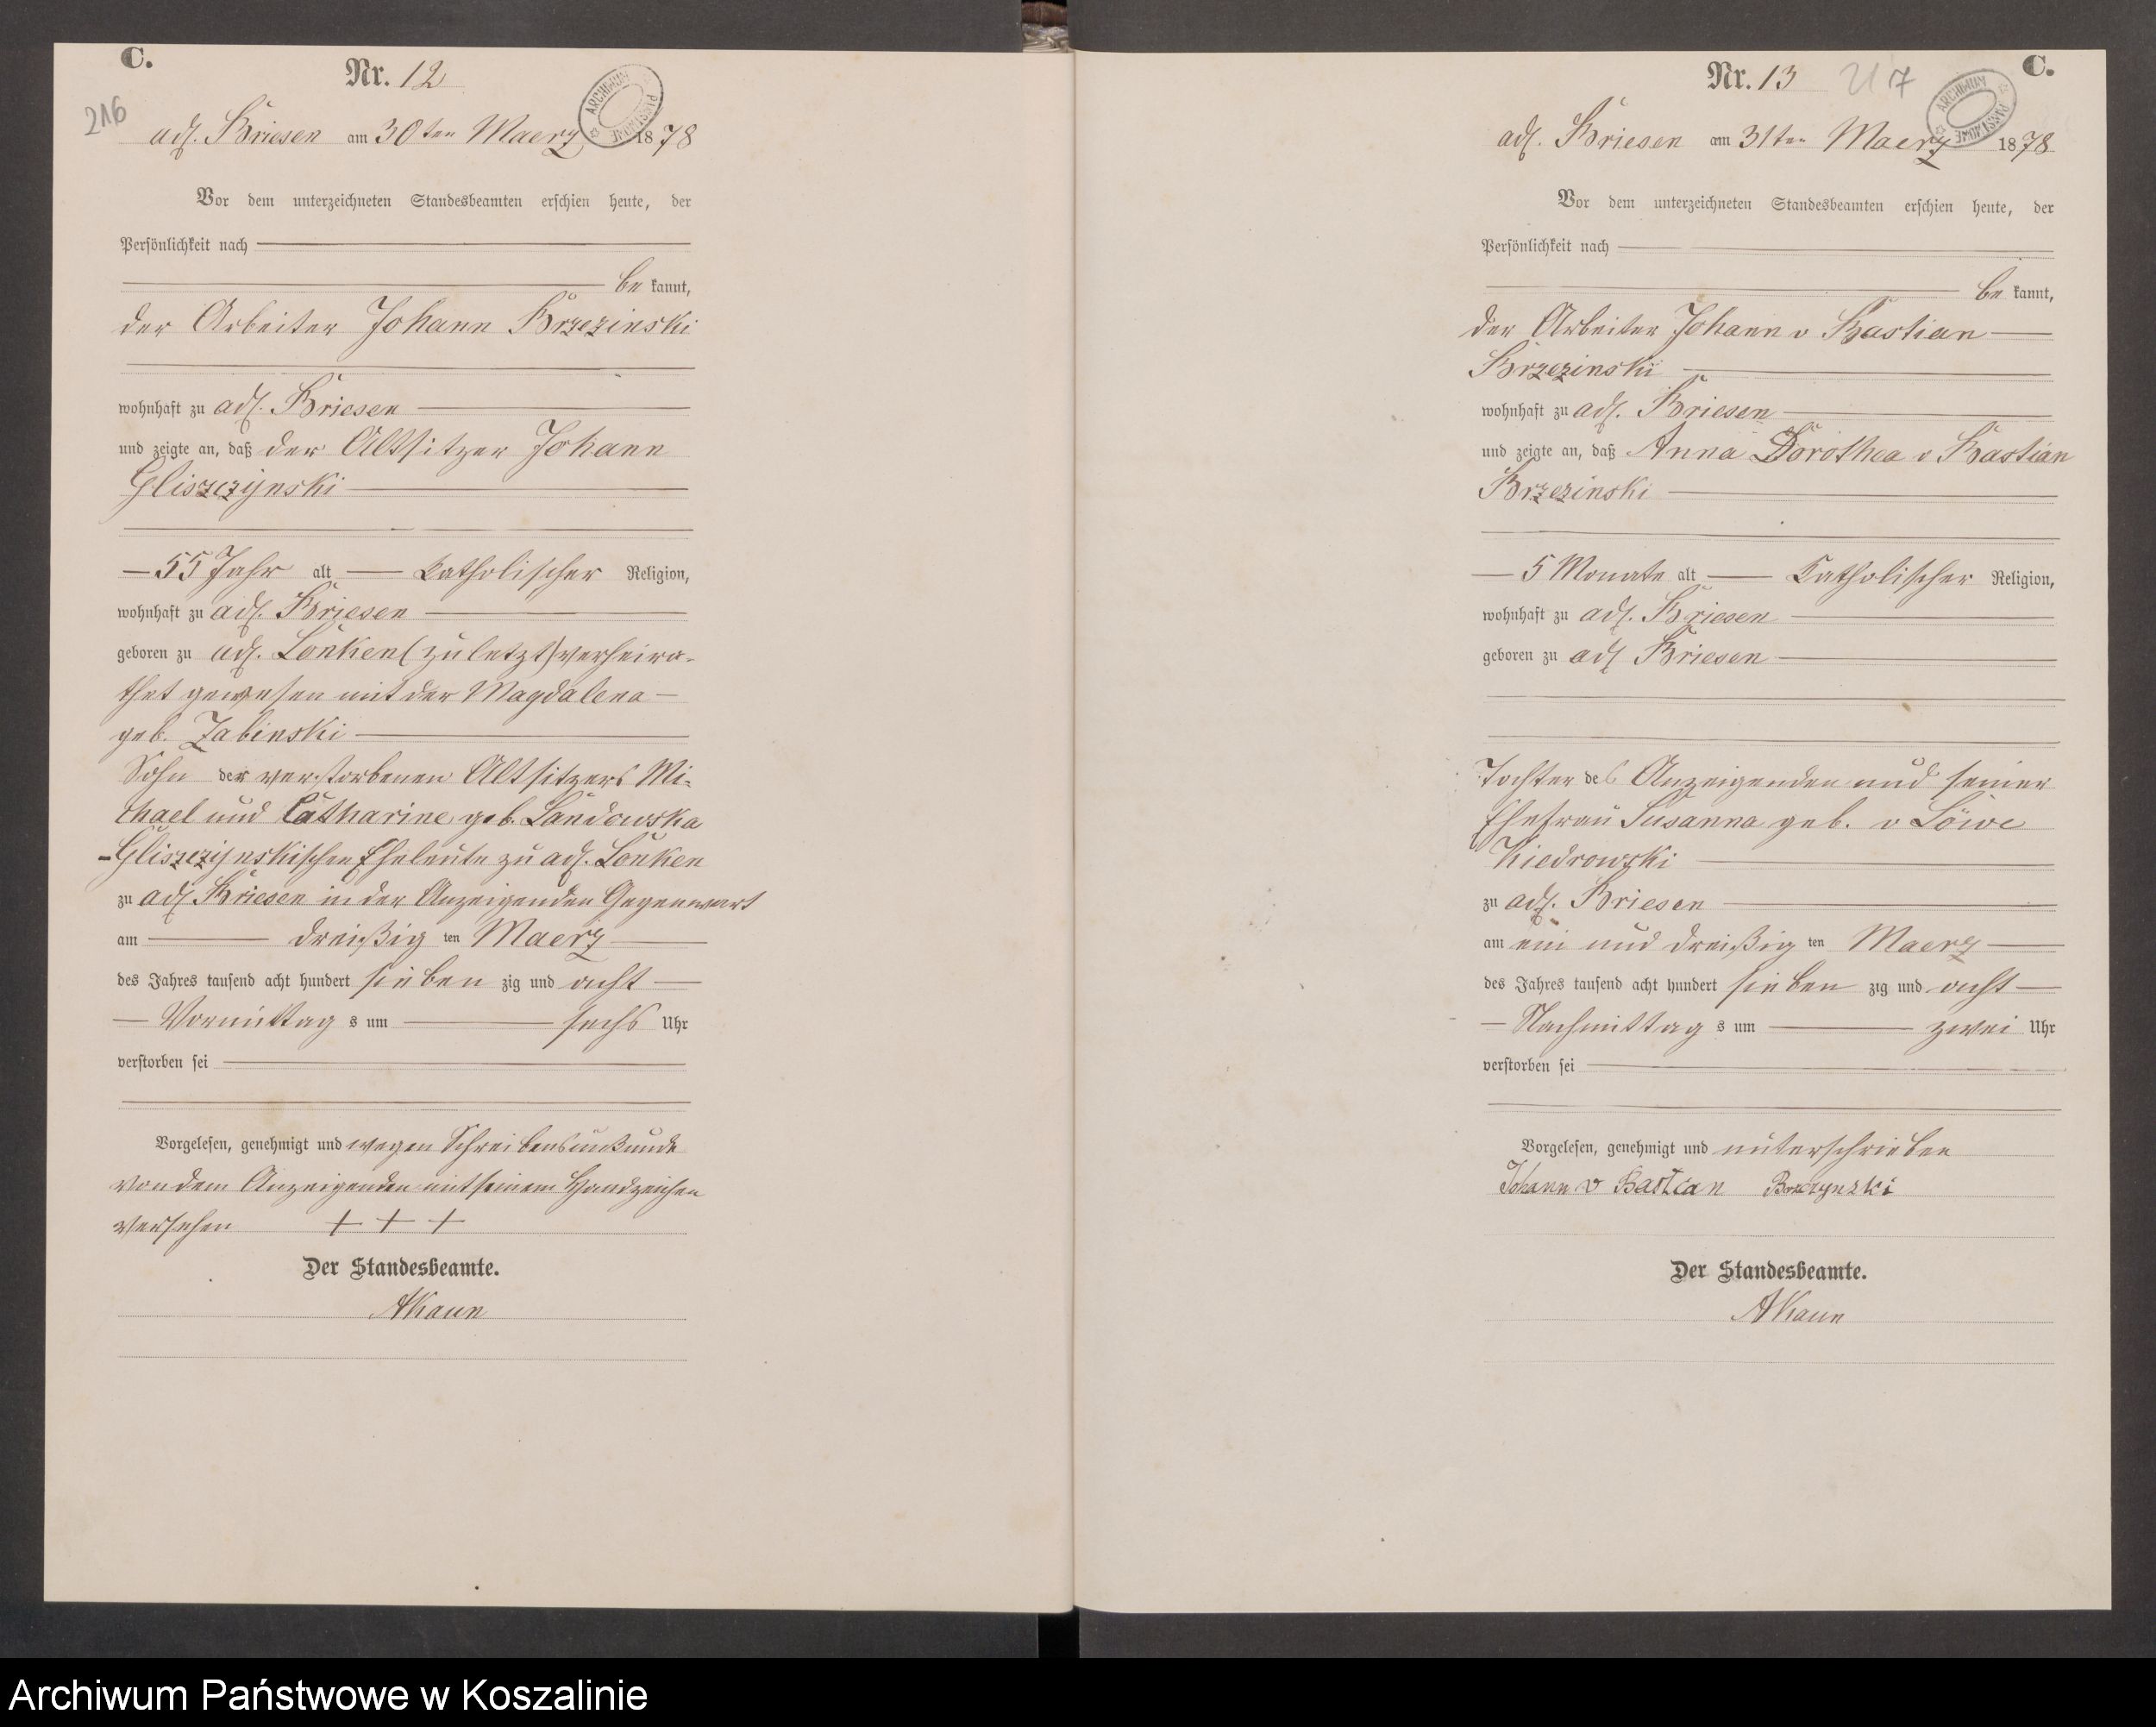 C.
Nr. 12
216
ARCHIWUM PAŃSTWOWE
adl. Briesen am 30ten Maerz 1878
Vor dem unterzeichneten Standesbeamten erschien heute, der
Persönlichkeit nach
be kannt,
der Arbeiter Johann Brzezinski
wohnhaft zu adl. Briesen
und zeigte an, daß der Altsitzer Johann
Gliszczynski
55 Jahr alt katholischer Religion,
wohnhaft zu adl. Briesen
geboren zu adl. Lonken (zuletzt) verheira-
thet gewesen mit der Magdalena
geb. Zabinski
Sohn der verstorbenen Altsitzers Mi-
chael und Catharine geb. Landowska
Gliszczynskischen Eheleute zu adl. Lonken
zu adl Briesen in der Anzeigenden Gegenwart
am dreißig ten Maerz
des Jahres tausend acht hundert sieben zig und acht
Vormittag s um sechs Uhr
verstorben sei
Vorgelesen, genehmigt und wegen Schreibensunkunde
von dem Anzeigenden mit seinem Handzeichen
versehen + + +
Der Standesbeamte.
AKaun
C.
Nr. 13
217
ARCHIWUM PAŃSTWOWE
adl. Briesen am 31ten Maerz 1878
Vor dem unterzeichneten Standesbeamten erschien heute, der
Persönlichkeit nach
be kannt,
der Arbeiter Johann v Bastian
Brzezinski
wohnhaft zu adl. Briesen
und zeigte an, daß Anna Dorothea v Bastian
Brzezinski
5 Monate alt Catholischer Religion,
wohnhaft zu adl. Briesen
geboren zu adl Briesen
Tochter des Anzeigenden und seiner
Ehefrau Susanna geb. v Löwe
Kiedrowski
zu adl. Briesen
am ein und dreißig ten Maerz
des Jahres tausend acht hundert sieben zig und acht
Nachmittag s um zwei Uhr
verstorben sei
Vorgelesen, genehmigt und unterschrieben
Johann v Bastian
Der Standesbeamte.
AKaun
Archiwum Państwowe w Koszalinie